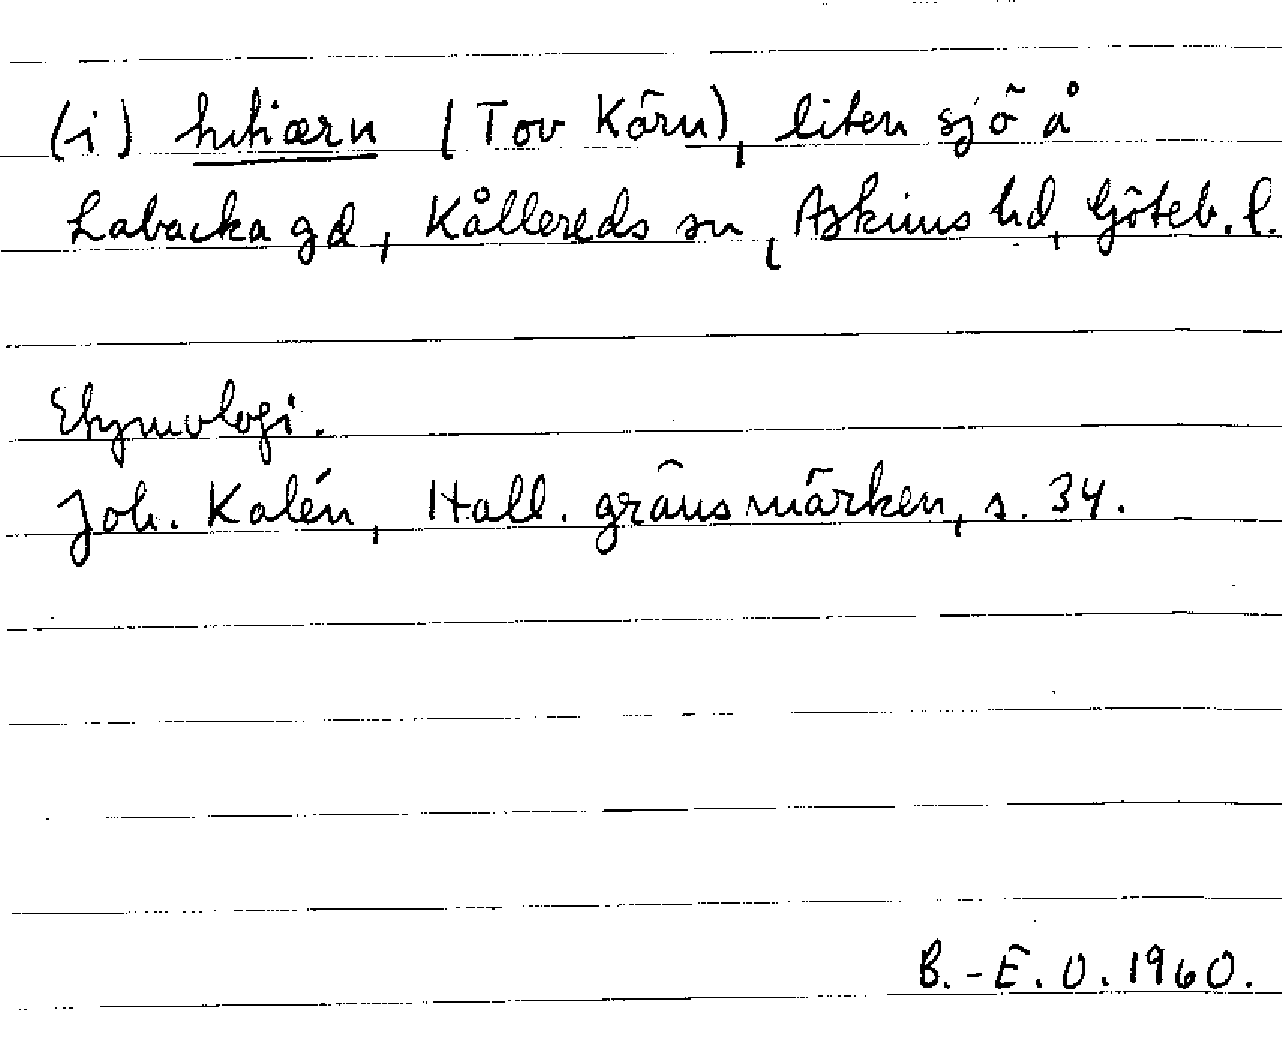 (i) hutiærn (Tov Kärn), liten sjö å
Labacka gd, Kållereds sn, Askims hd, Göteb. l.
Etymologi.
Joh. Kalén, Hall. gränsmärken, s. 34.
B.-E. O. 1960.